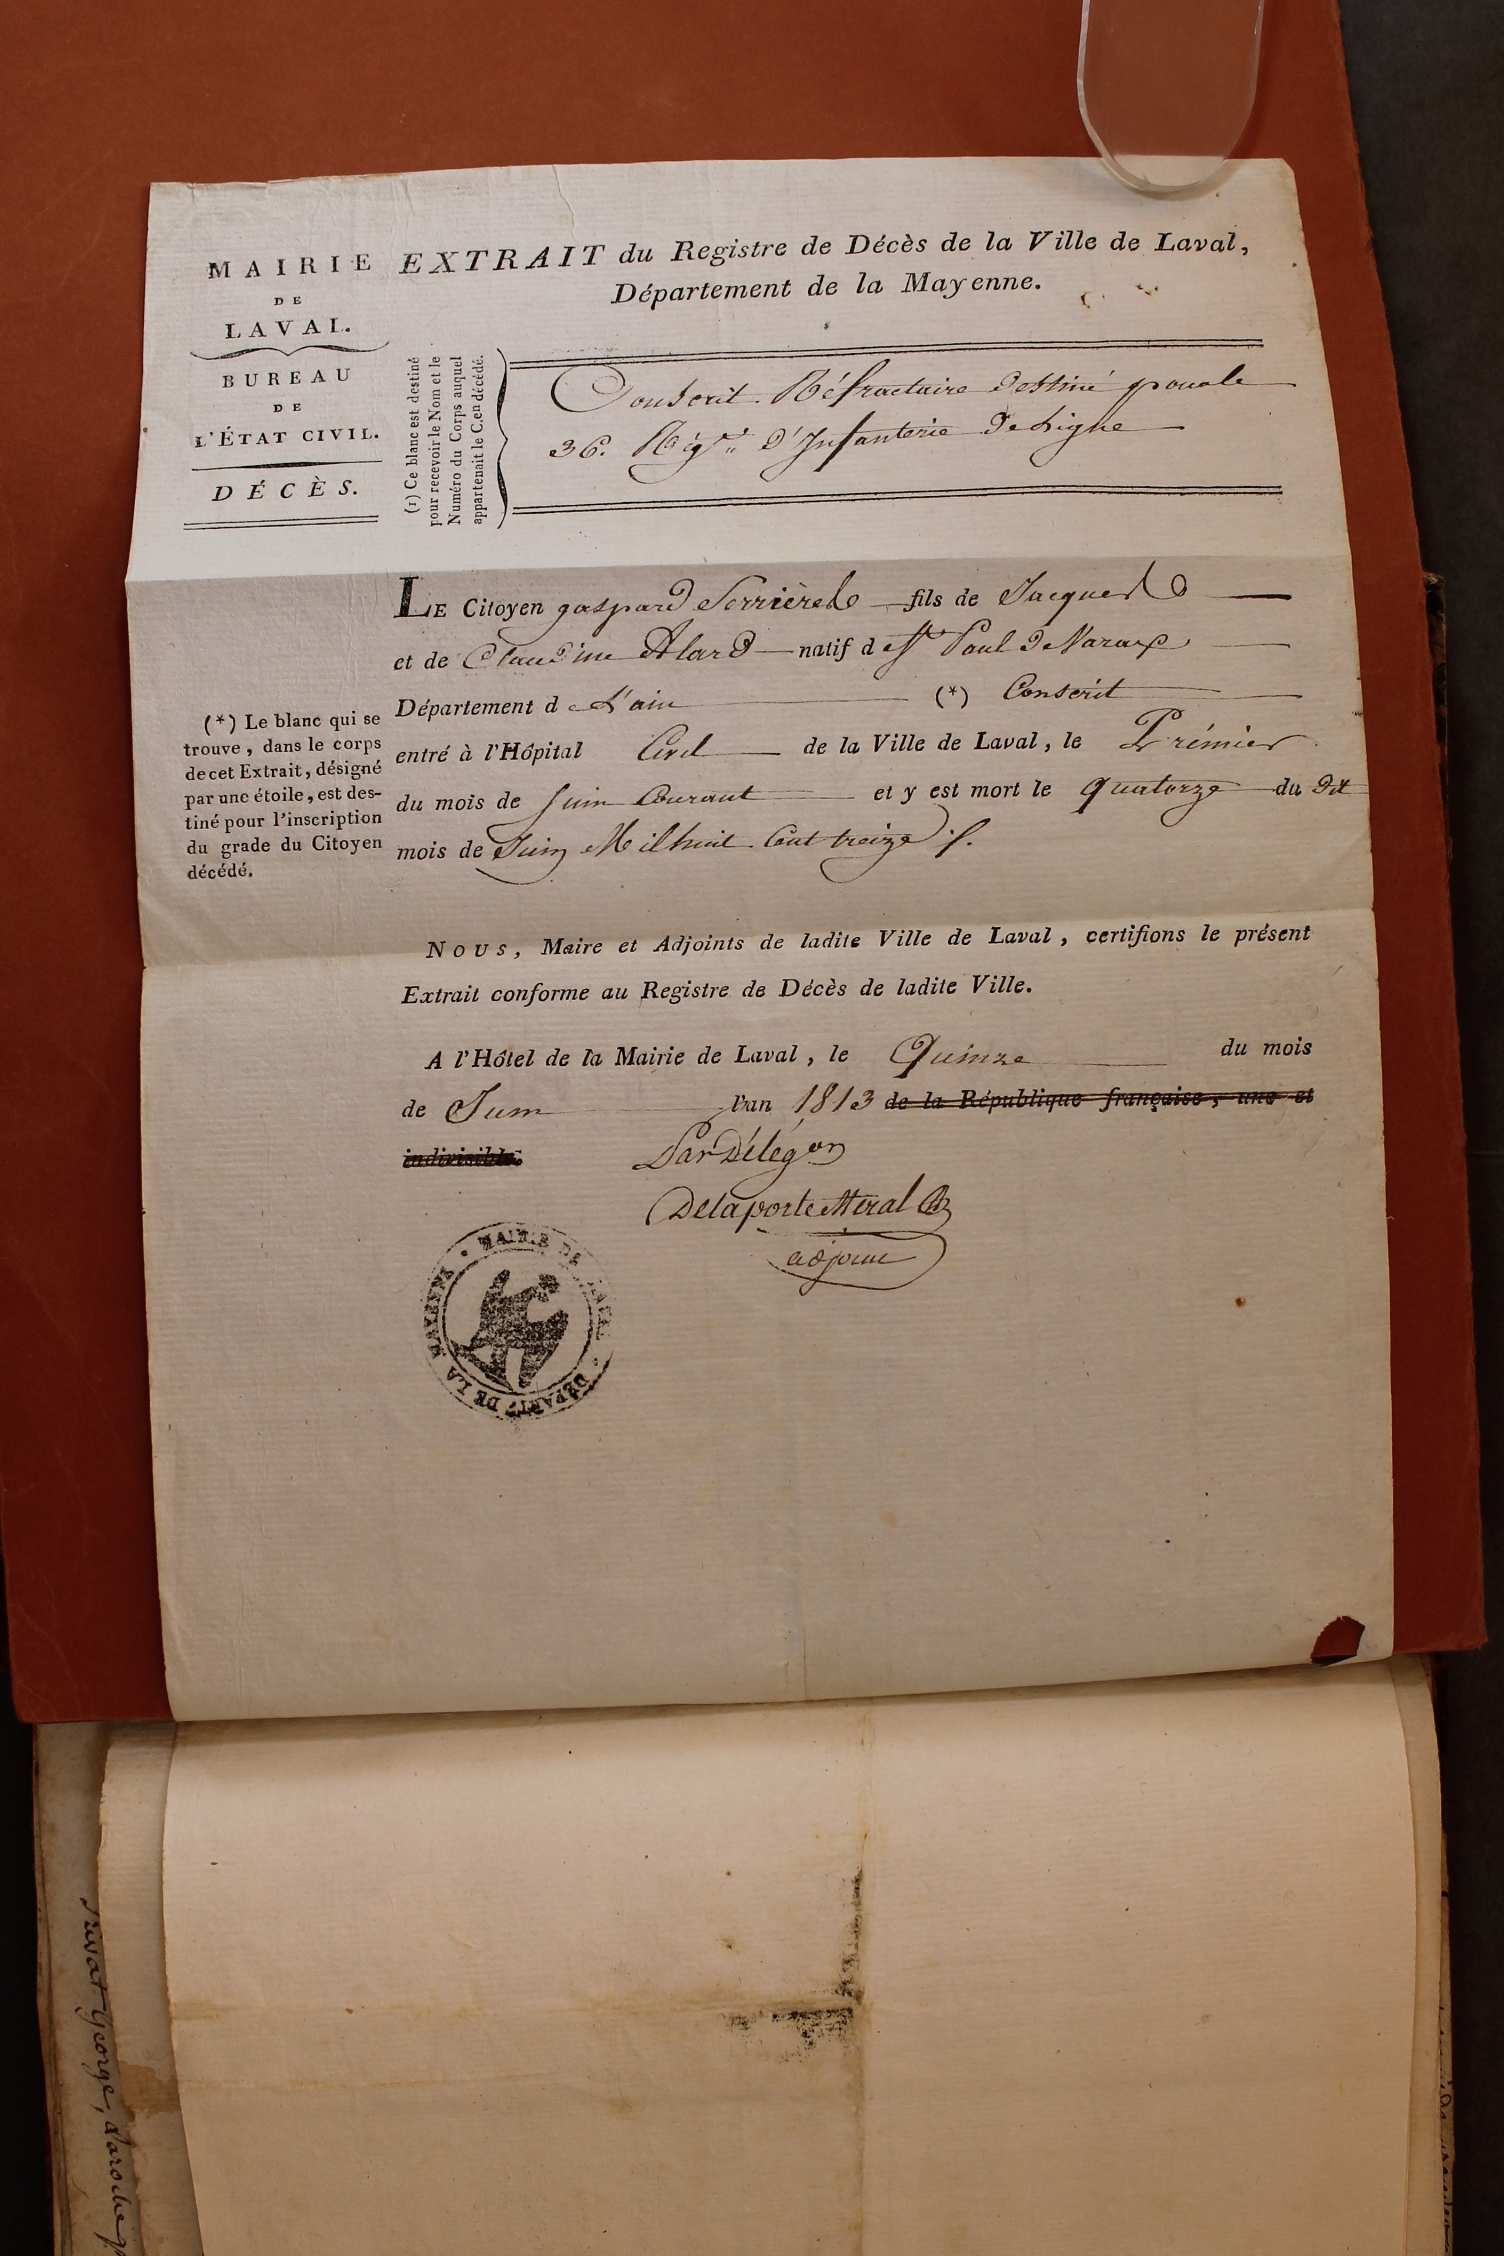 MAIRIE
DE
LAVAL.
BUREAU
DE
L'ÉTAT CIVIL.
DÉCÈS.
EXTRAIT du Registre de Décès de la Ville de Laval,
Département de la Mayenne.
(1) Ce blanc est destiné
pour recevoir le Nom et le
Numéro du Corps auquel
appartenait le C.en décédé.
Conscrit Réfractaire destiné pour le
36. Rég.t d'Infanterie de Ligne
LE Citoyen gaspard Serrières fils de Jacques
et de Claudine Alard natif de St Paul de Varax
Département de L'ain (*) Conscrit
entré à l'Hôpital Civil de la Ville de Laval, le Prémier
du mois de Juin Courant et y est mort le quatorze du dit
mois de Juin Mil huit Cent treize ./.
(*) Le blanc qui se
trouve, dans le corps
de cet Extrait, désigné
par une étoile, est des-
tiné pour l'inscription
du grade du Citoyen
décédé.
NOUS, Maire et Adjoints de ladite Ville de Laval, certifions le présent
Extrait conforme au Registre de Décès de ladite Ville.
A l'Hôtel de la Mairie de Laval, le Quinze du mois
de Juin l'an 1813 de la République française, une et
indivisible.
Par Délégon
Delaporte Meral
adjoint
MAIRIE DE LAVAL • DÉPART. DE LA MAYENNE •
Privat George, Laroche